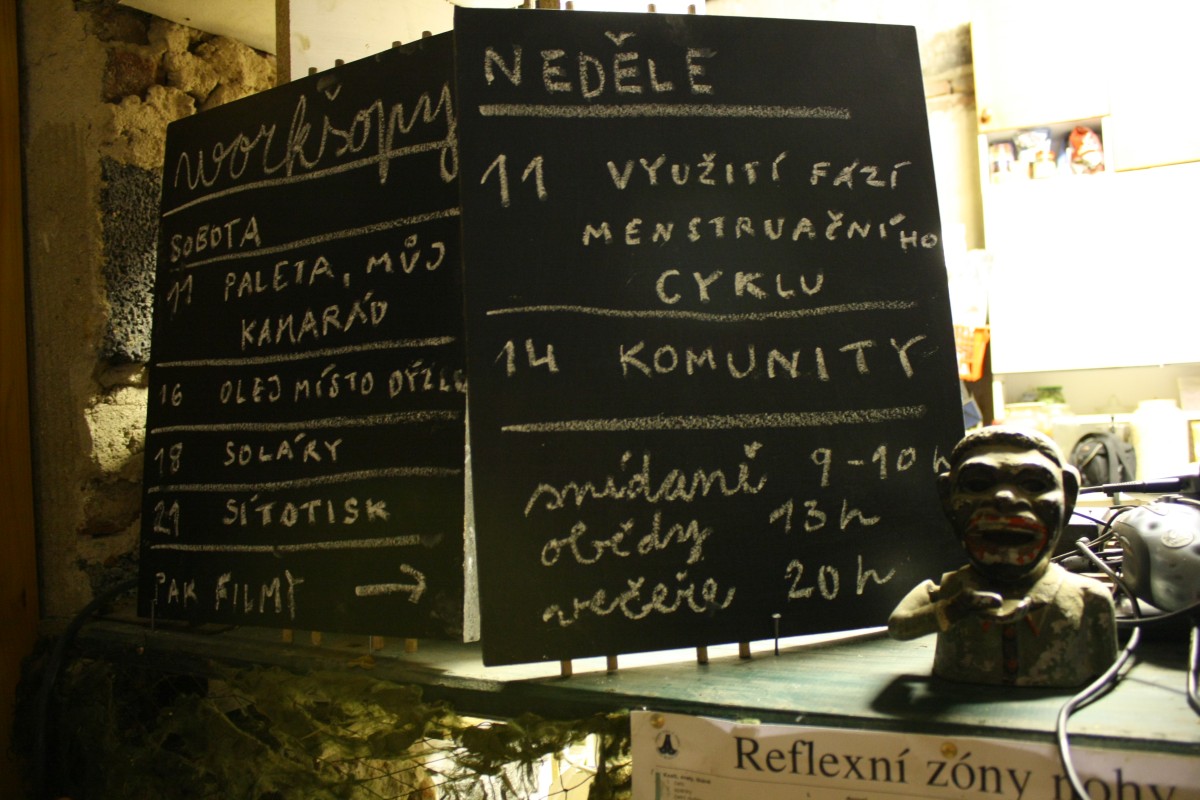 workšopy
SOBOTA
11 PALETA, MŮJ
KAMARÁD
16 OLEJ MÍSTO DÝZLU
18 SOLÁRY
21 SÍTOTISK
PAK FILMY →
NEDĚLE
11 VYUŽITÍ FÁZÍ
MENSTRUAČNÍHO
CYKLU
14 KOMUNITY
snídaně 9-10 h
obědy 13h
večeře 20h
Reflexní zóny nohy